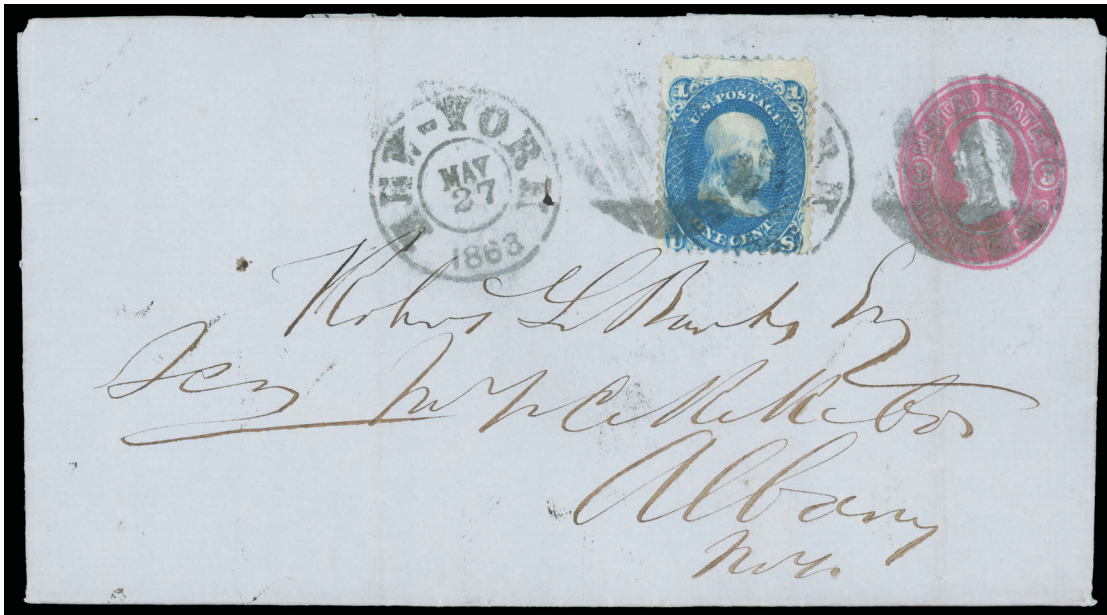 NEW-YORK
MAY
27
1863
1 1
U.S. POSTAGE
ONE CENT
U S
RK
UNITED STATES
3 3
THREE CENTS
Robert L Banks Esq
Secy N Y C RR Co
Albany
N.Y.